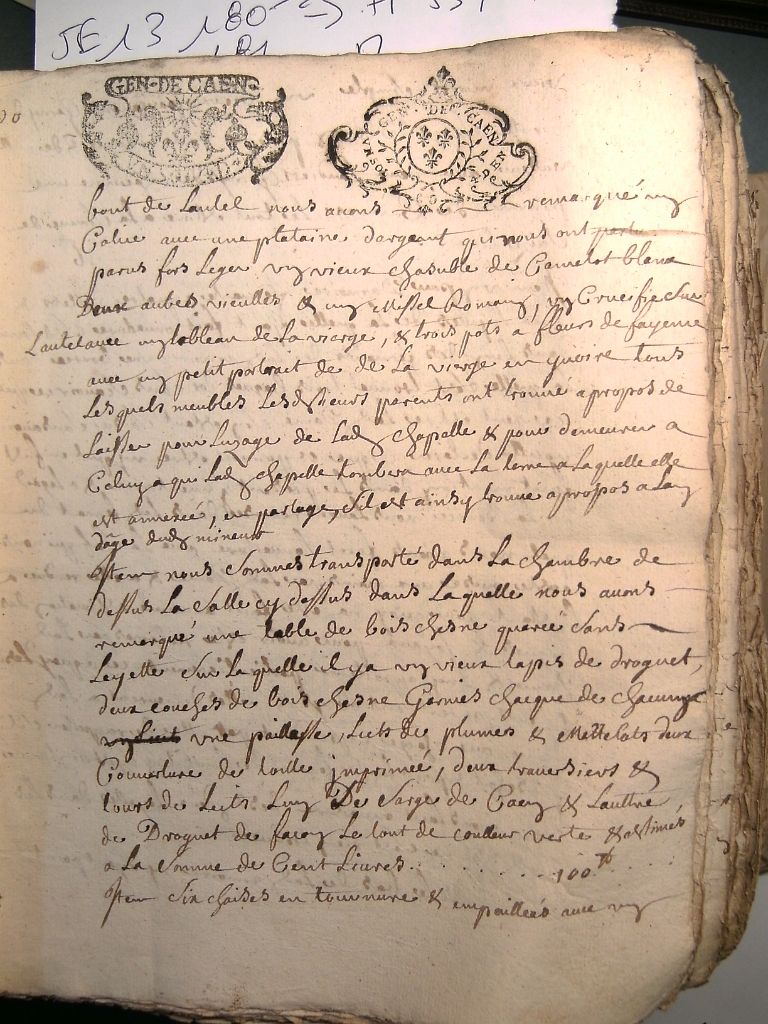 JE 13 180
181
GEN·DE CAEN·
GEN·DE·CAEN
bout de Lautel nous avons remarqué un
Calice avec une plataine dargeant qui nous ont
parus fors Leger un vieux chasuble de Camelot blanc
Deux aubes vieulles & un Missel Romain, un Crucifie sur
Lautel avec un tableau de La vierge, & trois pots a fleurs de fayence
avec un petit portrait de de La vierge en yvoire tous
Lesquels meubles Lesdsieurs parents ont trouvé apropos de
Laisser pour Luzage de Lad chapelle & pour demeurer a
Celuy a qui Lad chapelle tombera avec La terre a Laquelle elle
est annexée, en partage, sil est ainsy trouvé apropos a Lan
dage dud mineur
Item nous sommes transporté dans La chambre de
dessus La Salle cy dessus dans Laquelle nous avons
remarqué une table de bois chesne quareé sans
Leyette sur Laquelle il ya un vieux tapis de droguet,
deux couches de bois chesne Garnies chacque de chacune
une paillasse, Licts de plumes & Mattelats deux
Couverture de toille jmprimeé, deux traversiers &
tours de Licts Lun De Sarge de Caen & Lauttre
de Droguet de facon Le tout de coulleur verte & estimés
a La Somme de Cent Livres. . . . . . . . 100tt
Item Six chaises en tournure & empailleés avec un